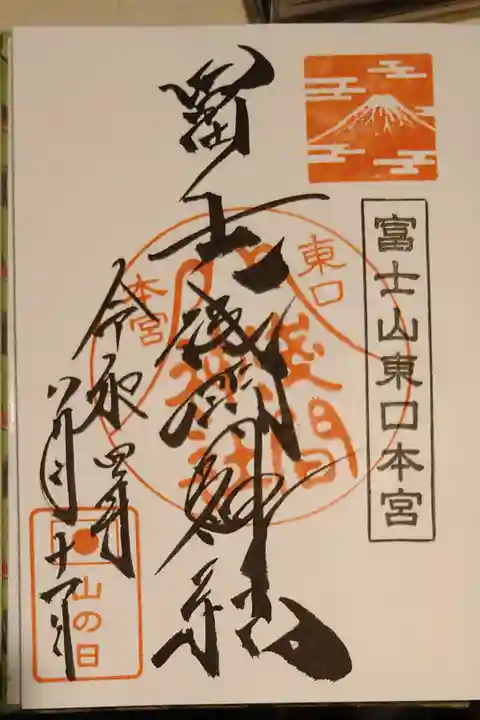 富士山東口本宮
冨士浅間神社
東口
本宮
浅間神社
令和四年
八月十一日
山の日